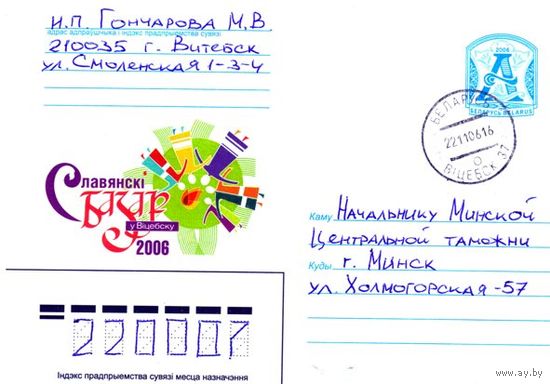 И.П. Гончарова М.В
адрас адпраўшчыка і індэкс прадпрыемства сувязі
210035 г. Витебск
ул. Смоленская 1-3-4
2006
А
БЕЛАРУСЬ BELARUS
БЕЛАРУСЬ
22110616
О
ВІЦЕБСК 37
Славянскі
базар
у Віцебску
2006
Каму Начальнику Минской
Центральной таможни
Куды г. Минск
ул. Холмогорская-57
220007
Індэкс прадпрыемства сувязі месца назначэння
www.ay.by